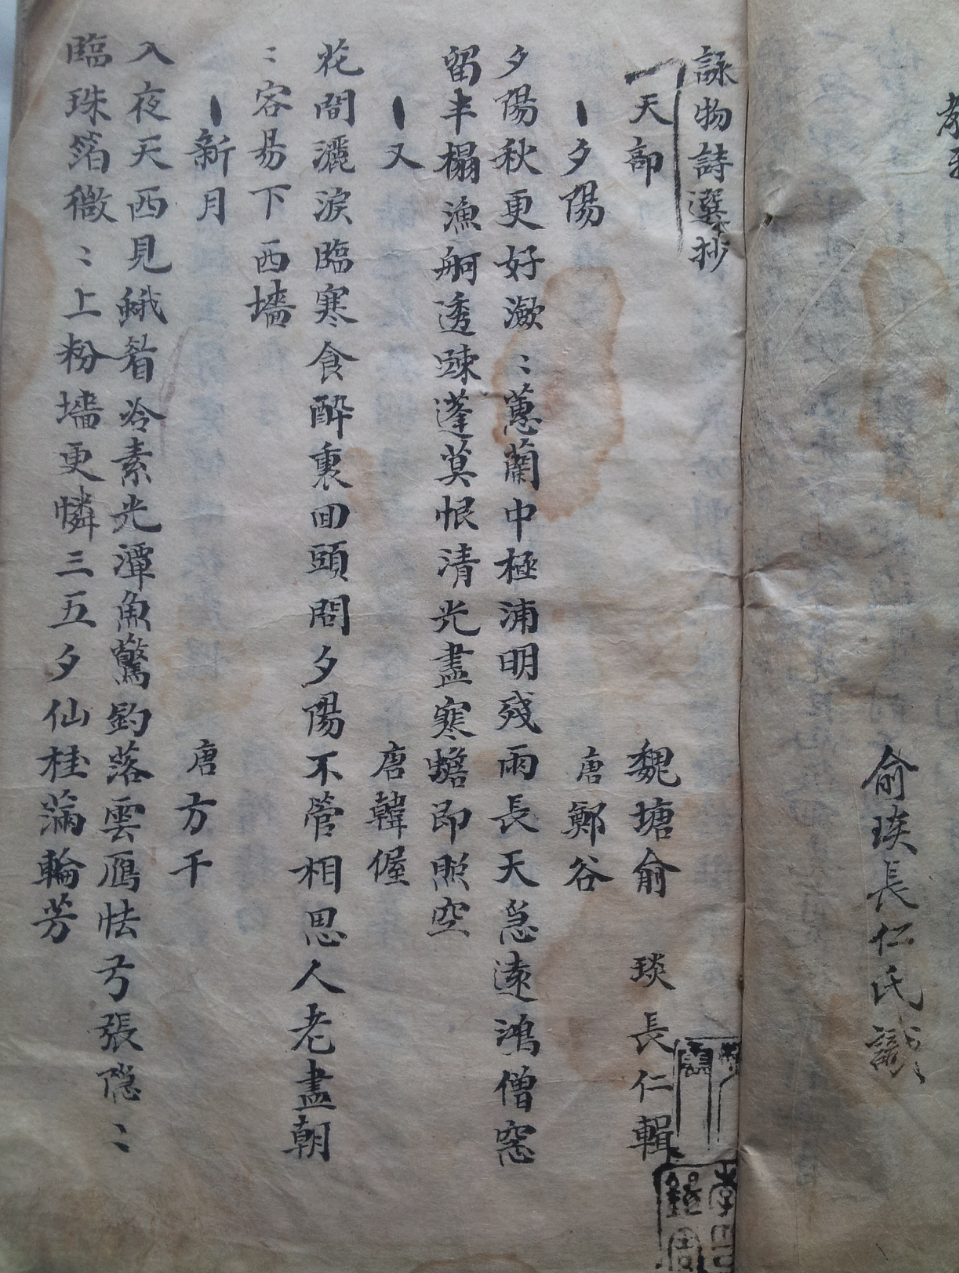 俞琰長仁氏識
詠物詩選抄
天部
魏塘俞 琰長仁輯
夕陽
唐鄭谷
夕陽秋更好瀲〻蕙蘭中極浦明殘雨長天急遠鴻僧窓
留半榻漁舸透疎蓬莫恨清光盡寒蟾即照空
又
唐韓偓
花間灑淚臨寒食醉裏回頭問夕陽不管相思人老盡朝
〻容易下西墻
新月
唐方干
入夜天西見蛾眉冷素光潭魚驚釣落雲鴈怯弓張隠〻
臨珠箔微〻上粉墻更憐三五夕仙桂滿輪芳